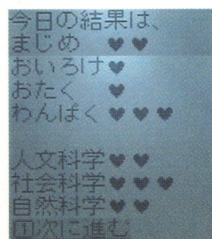 今日の結果は、
まじめ　♥♥
おいろけ♥
おたく　♥
わんぱく♥♥♥
人文科学♥♥
社会科学♥♥♥
自然科学♥♥
1次に進む